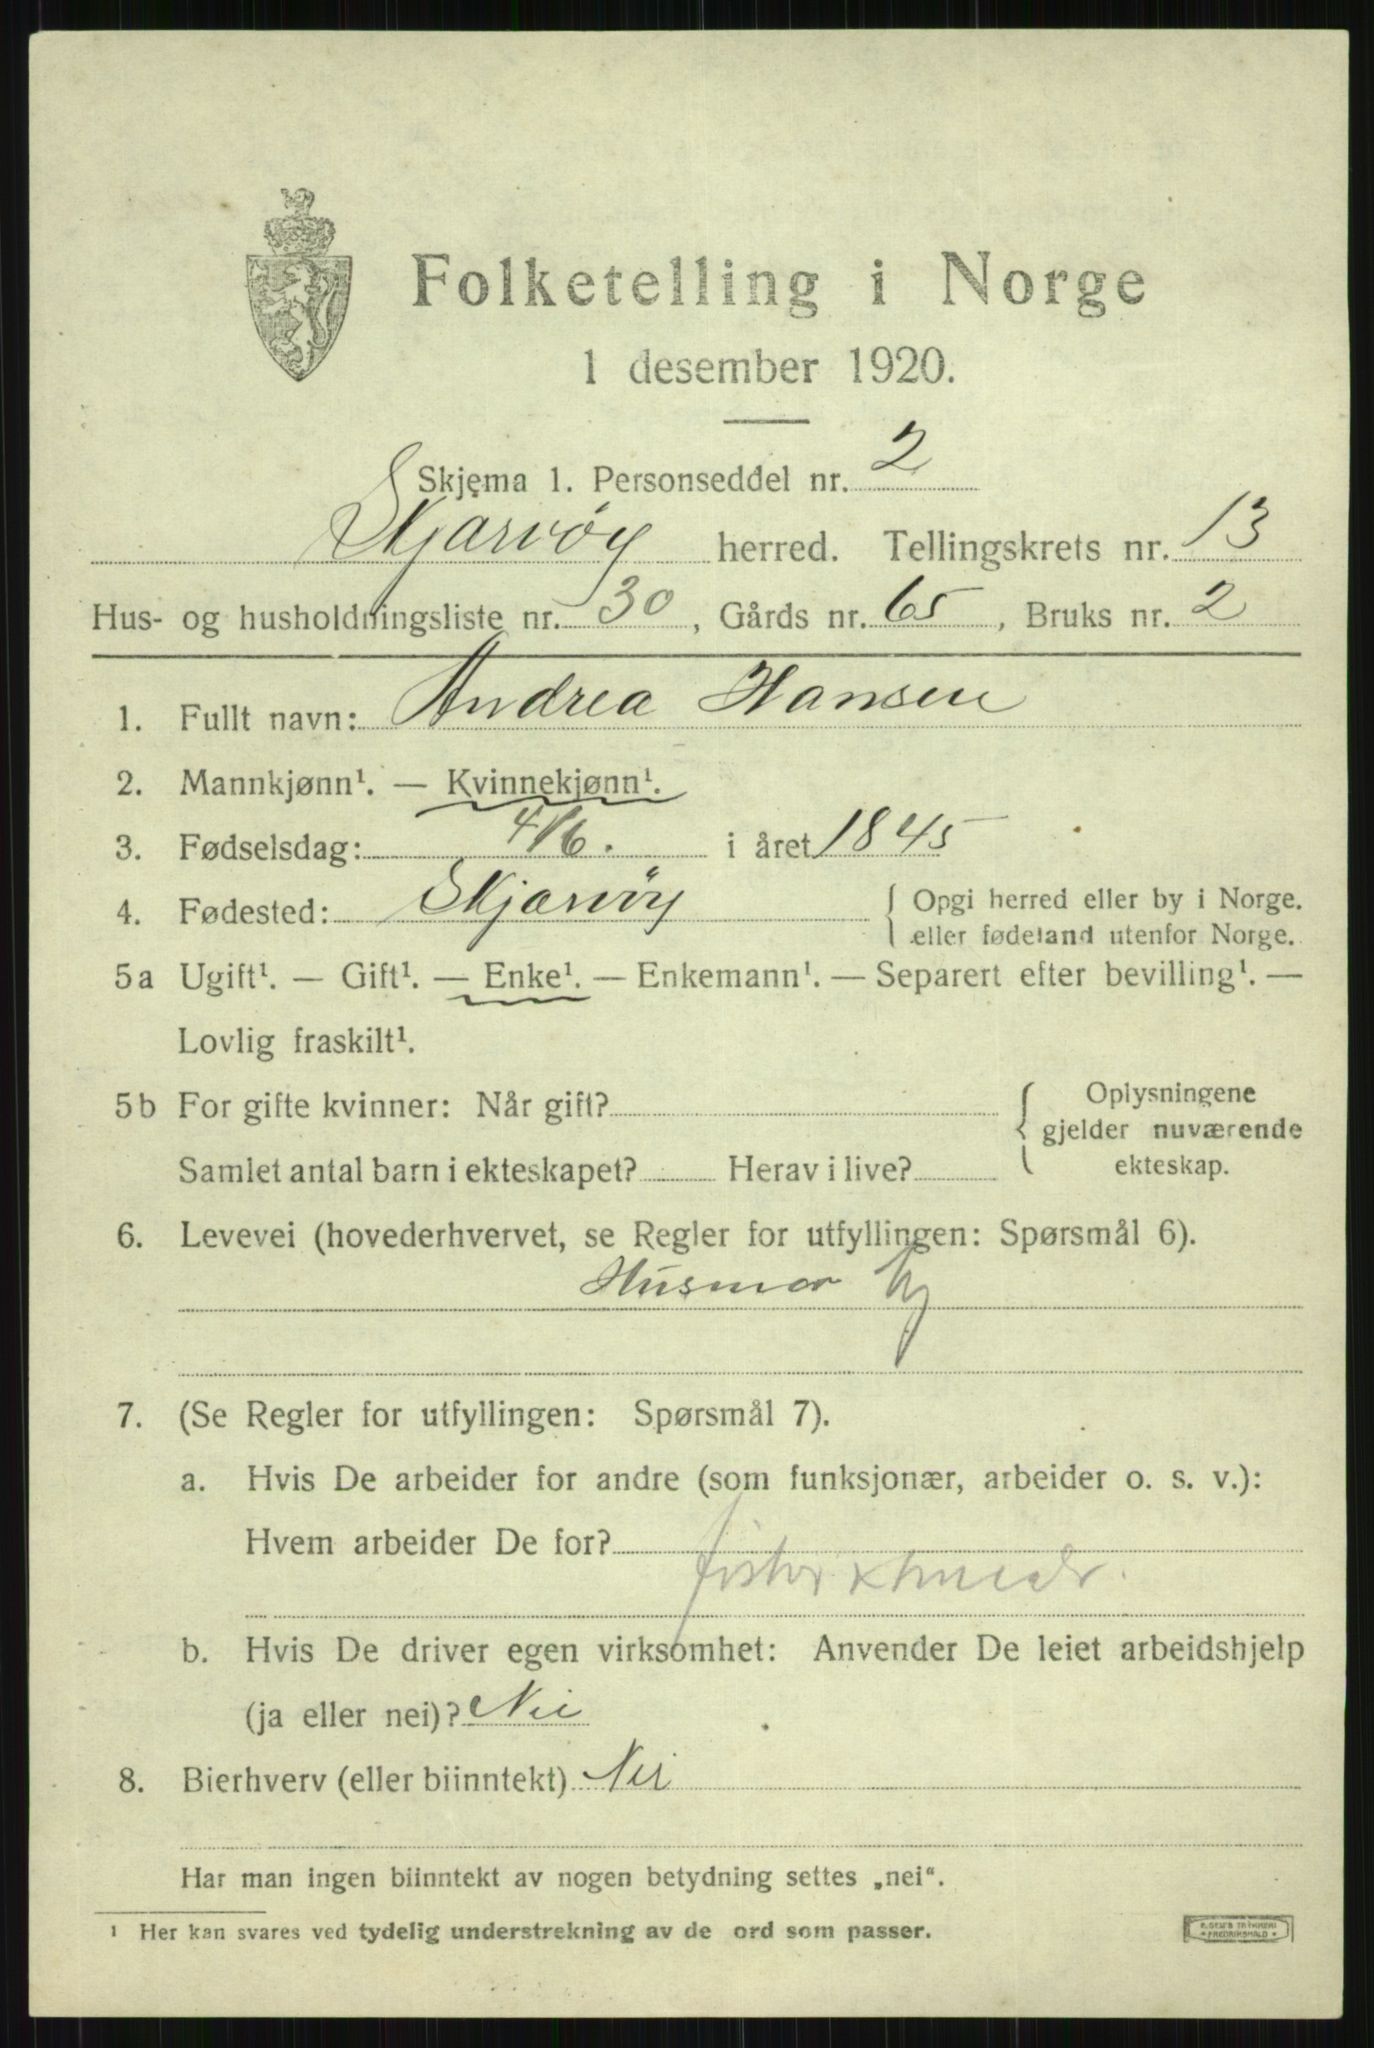 Folketelling i Norge
1 desember 1920.
Skjema 1. Personseddel nr. 2
Skjærvøy herred. Tellingskrets nr. 13
Hus- og husholdningsliste nr. 30, Gårds nr. 65, Bruks nr. 2
1. Fullt navn: Andrea Hansen
2. Mannkjønn¹. — Kvinnekjønn¹.
3. Fødselsdag: 4/6. i året 1845
4. Fødested: Skjærvöy { Opgi herred eller by i Norge.
eller fødeland utenfor Norge.
5a Ugift¹. — Gift¹. — Enke¹. — Enkemann¹. — Separert efter bevilling¹. —
Lovlig fraskilt¹.
5b For gifte kvinner: Når gift? { Oplysningene
gjelder nuværende
Samlet antal barn i ekteskapet? Herav i live? ekteskap.
6. Levevei (hovederhvervet, se Regler for utfyllingen: Spørsmål 6).
Husmor
7. (Se Regler for utfyllingen: Spørsmål 7).
a. Hvis De arbeider for andre (som funksjonær, arbeider o. s. v.):
Hvem arbeider De for?
b. Hvis De driver egen virksomhet: Anvender De leiet arbeidshjelp
(ja eller nei)? Nei
8. Bierhverv (eller biinntekt) Nei
Har man ingen biinntekt av nogen betydning settes „nei“.
¹ Her kan svares ved tydelig understrekning av de ord som passer.